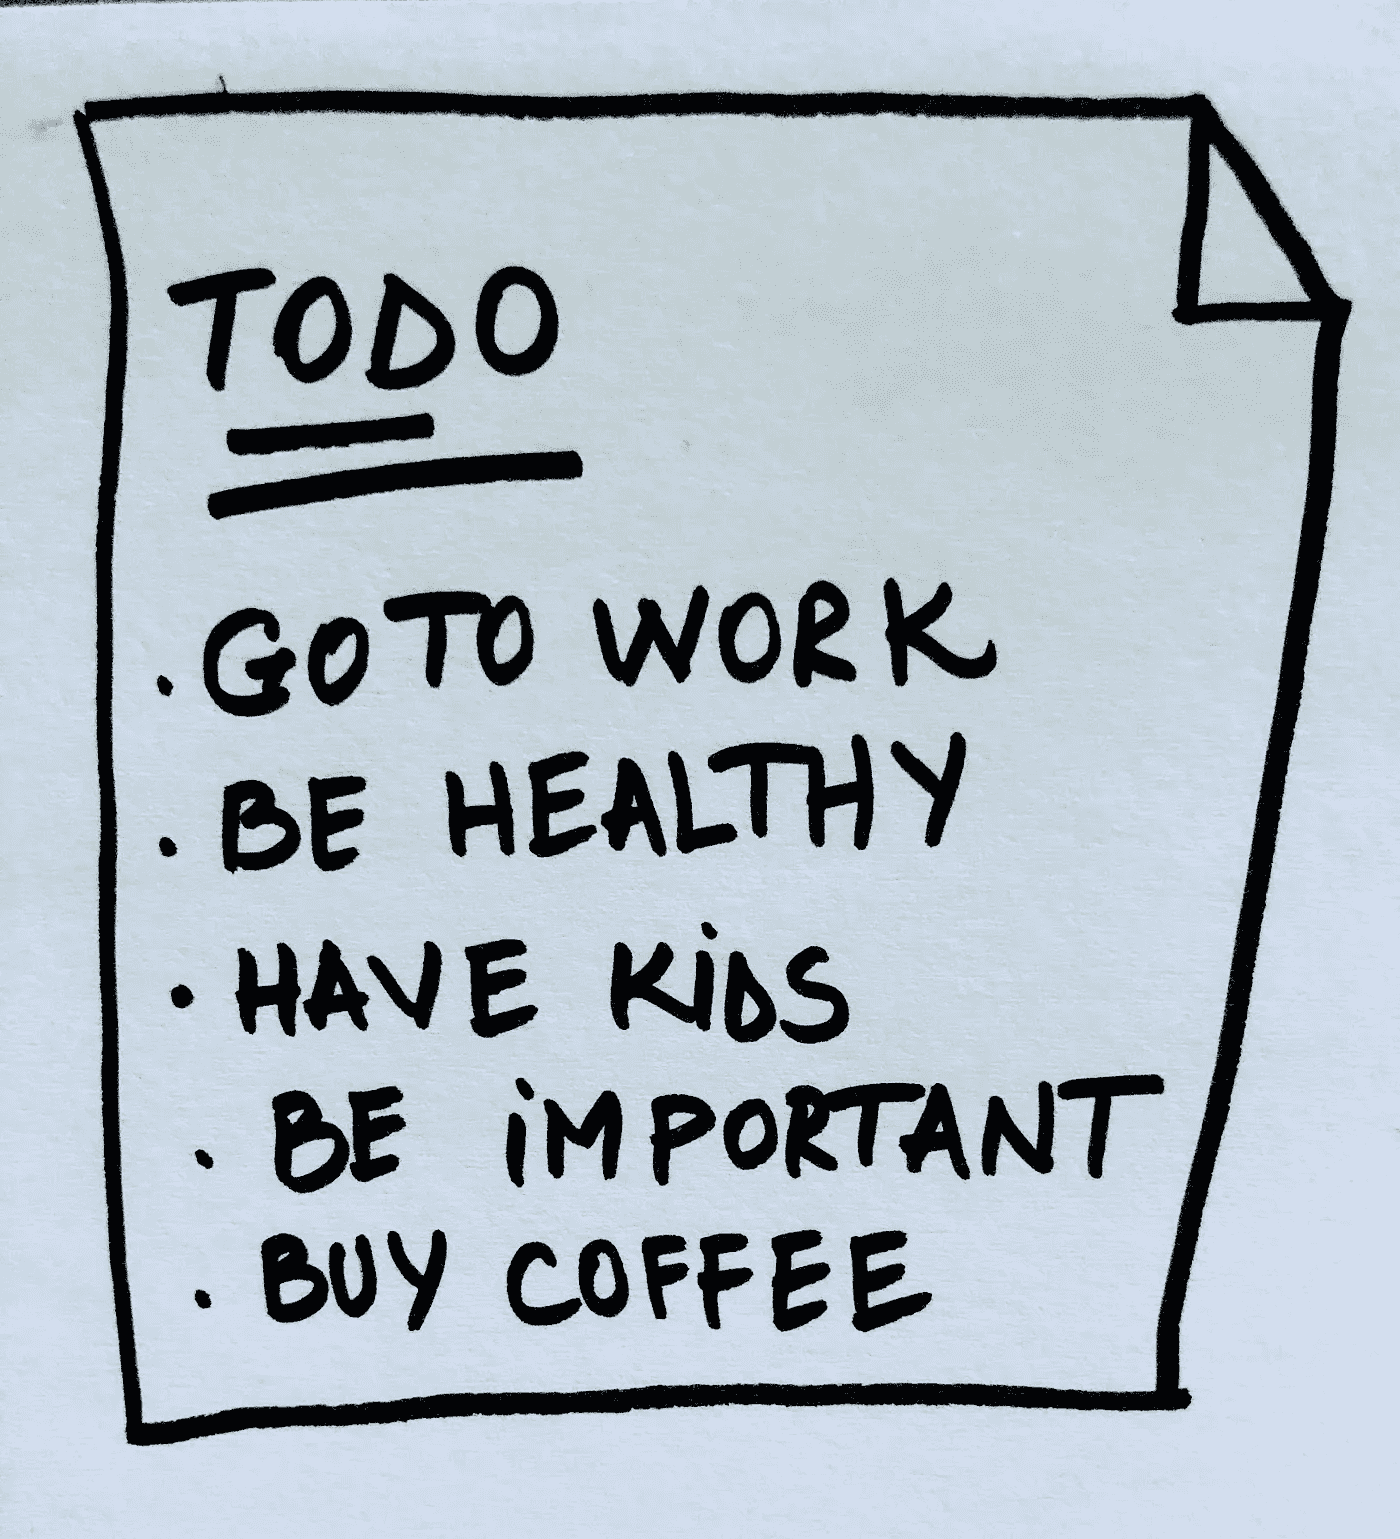 TODO
· GO TO WORK
· BE HEALTHY
· HAVE KiDS
· BE iMPORTANT
· BUY COFFEE